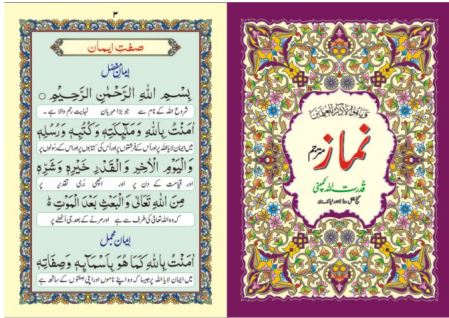 ۳
صفتِ ایمان
ایمانِ مفصّل
بِسْمِ اللهِ الرَّحْمٰنِ الرَّحِيْمِ ○
شروع اللہ کے نام سے جو بڑا مہربان نہایت رحم والا ہے ۔
اٰمَنْتُ بِاللهِ وَمَلٰٓئِكَتِهٖ وَكُتُبِهٖ وَرُسُلِهٖ
میں ایمان لایا اللہ پر اور اُس کے فرشتوں پر اور اُس کی کتابوں پر اور اُس کے رسولوں پر
وَالْيَوْمِ الْاٰخِرِ وَالْقَدْرِ خَيْرِهٖ وَشَرِّهٖ
اور قیامت کے دن پر اور اچھی بُری تقدیر پر
مِنَ اللهِ تَعَالٰى وَالْبَعْثِ بَعْدَ الْمَوْتِ ط
کہ وہ اللہ تعالیٰ کی طرف سے ہے اور مرنے کے بعد جی اُٹھنے پر
ایمانِ مجمل
اٰمَنْتُ بِاللهِ كَمَا هُوَ بِاَسْمَآئِهٖ وَصِفَاتِهٖ
میں ایمان لایا اللہ پر جیسا کہ وہ اپنے ناموں اور اپنی صفتوں کے ساتھ ہے
نماز
مترجم
قدرت اللہ کمپنی